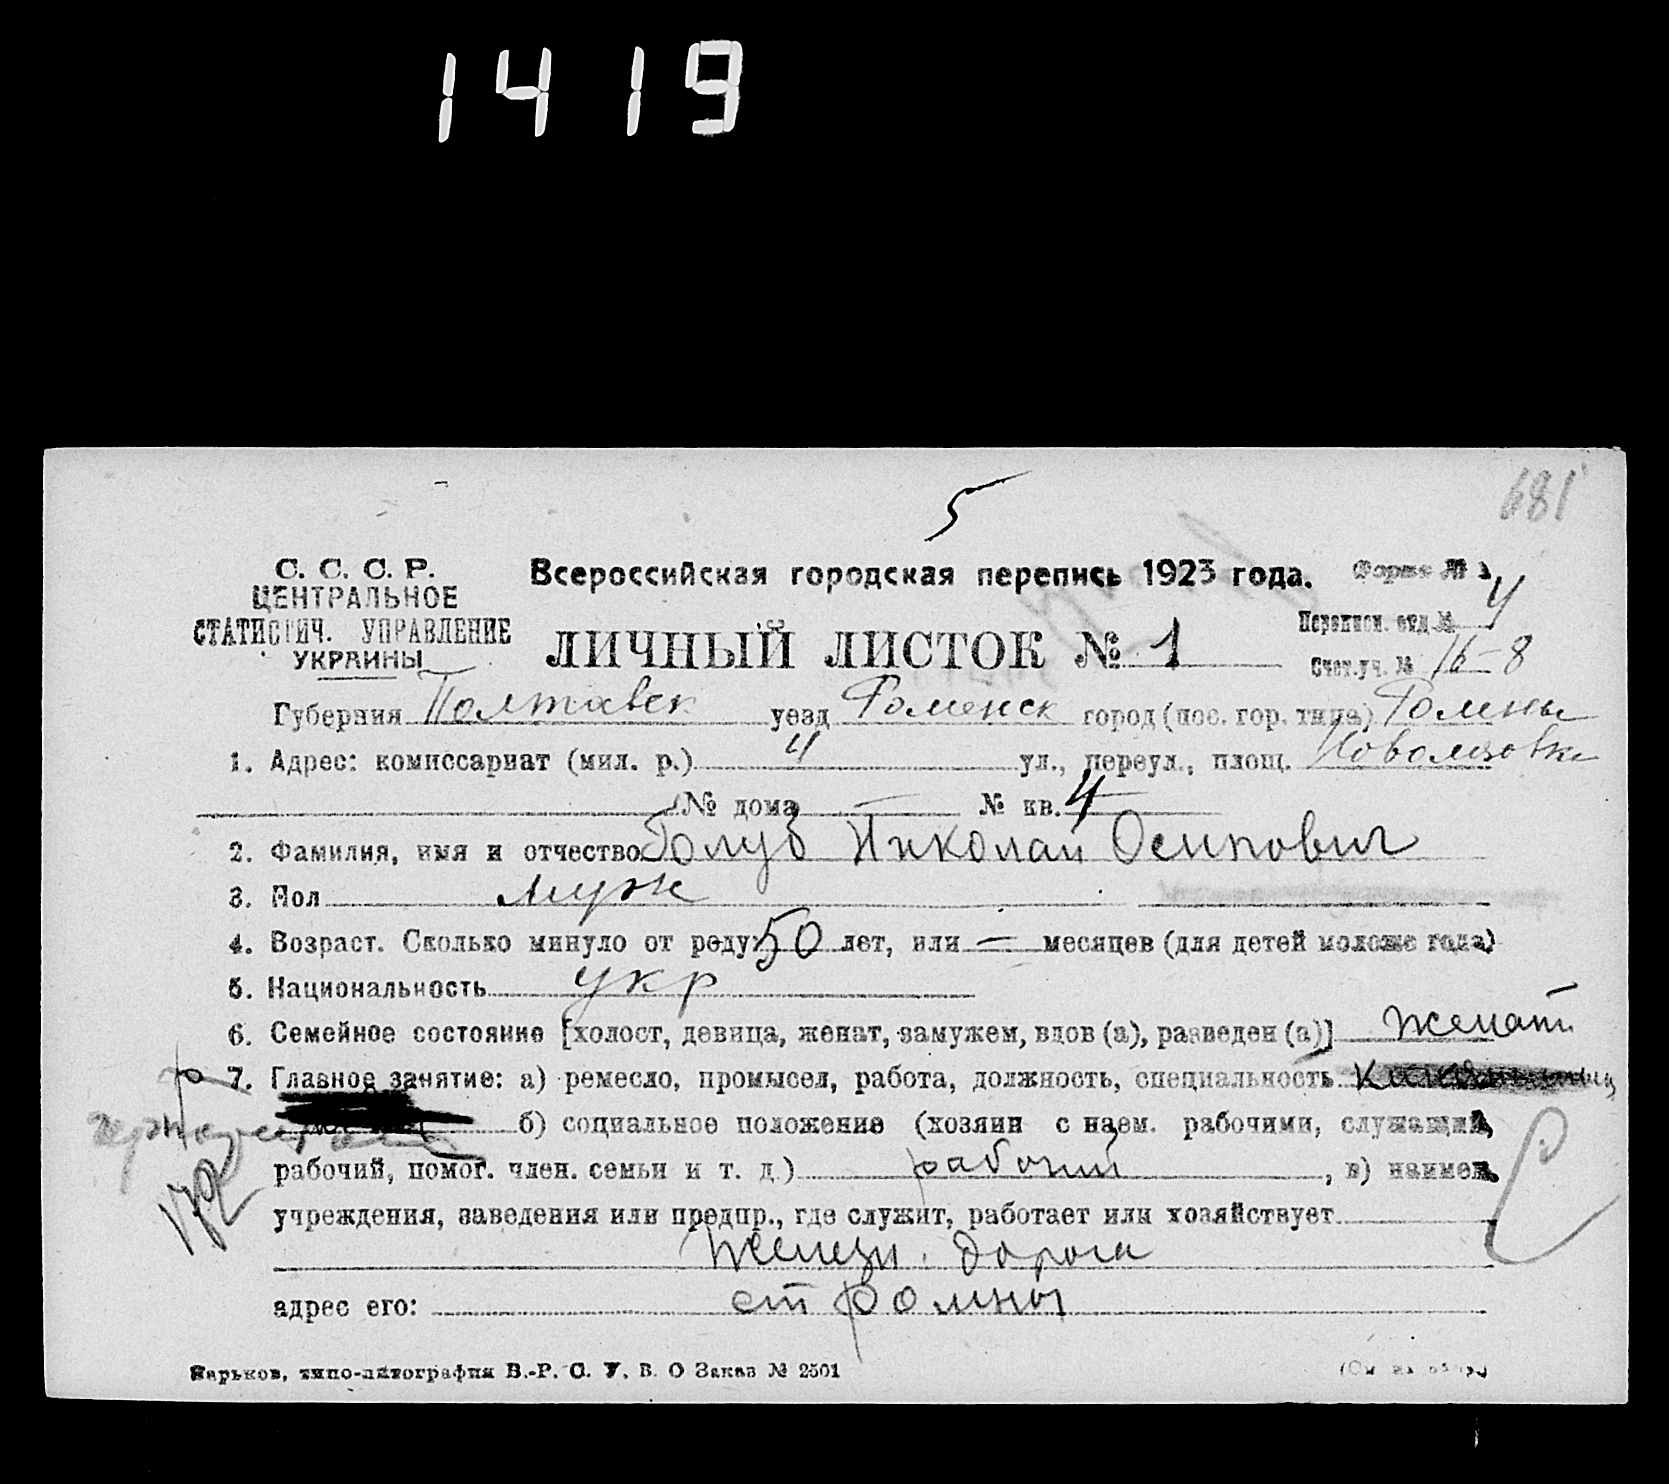 1419
5
681
С. С. С. Р.
ЦЕНТРАЛЬНОЕ
СТАТИСТИЧ. УПРАВЛЕНИЕ
УКРАИНЫ
Всероссийская городская перепись 1923 года.
Форма №
ЛИЧНЫЙ ЛИСТОК № 1
Переписн. отд. № 4
Счет. уч. № 16-8
Губерния Полтавск уезд Роменск город (пос. гор. типа) Ромны
1. Адрес: комиссариат (мил. р.) 4 ул., переул., площ.
№ дома — № кв. 4
2. Фамилия, имя и отчество Голуб Николай Осипович
3. Пол муж
4. Возраст. Сколько минуло от роду: 50 лет, или — месяцев (для детей моложе года)
5. Национальность укр
6. Семейное состояние [холост, девица, женат, замужем, вдов (а), разведен (а)] женат
7. Главное занятие: а) ремесло, промысел, работа, должность, специальность
б) социальное положение (хозяин с наем. рабочими, служащий,
рабочий, помог. член. семьи и т. д.) рабочий, в) наимен.
учреждения, заведения или предпр., где служит, работает или хозяйствует
Железн. дорога
адрес его: ст Ромны
Харьков, типо-литография В.-Р. С. У. В. О Заказ № 2501